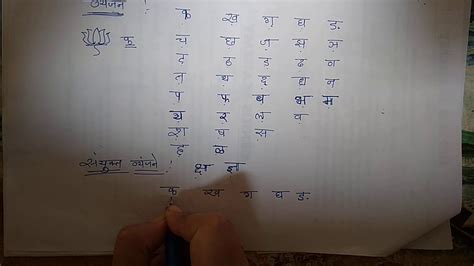 व्यंजन : क ख ग घ ङ
क च छ ज झ ञ
ट ठ ड ढ ण
त थ द ध न
प फ ब भ म
य र ल व
श ष स
ह ळ
संयुक्त व्यंजने : क्ष ज्ञ
क ख ग घ ङ